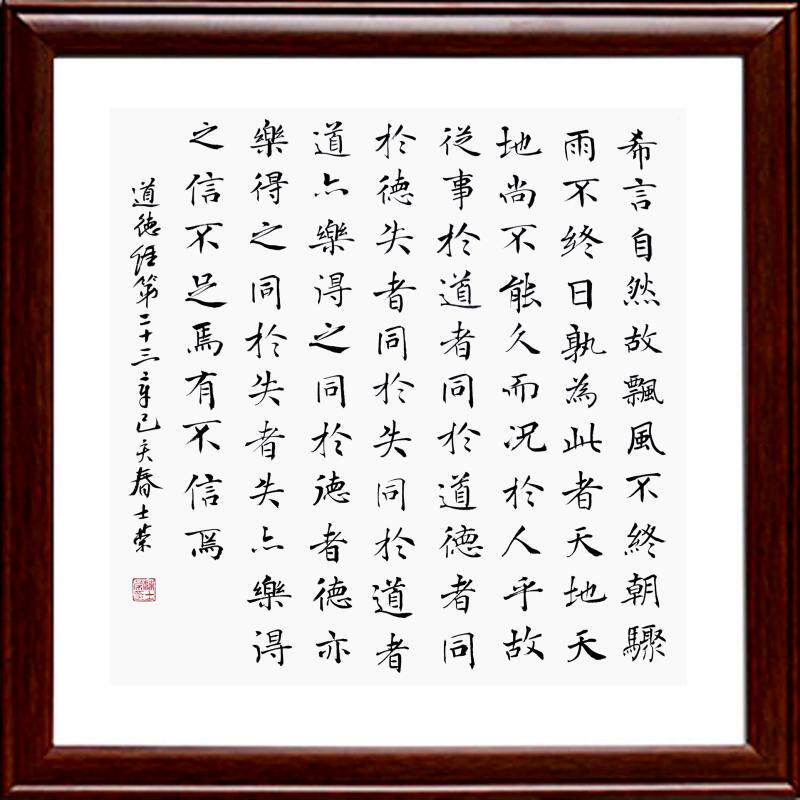 希言自然故飄風不終朝驟
雨不終日孰為此者天地天
地尚不能久而況於人乎故
從事於道者同於道德者同
於德失者同於失同於道者
道亦樂得之同於德者德亦
樂得之同於失者失亦樂得
之信不足焉有不信焉
道德經第二十三章己亥春士榮